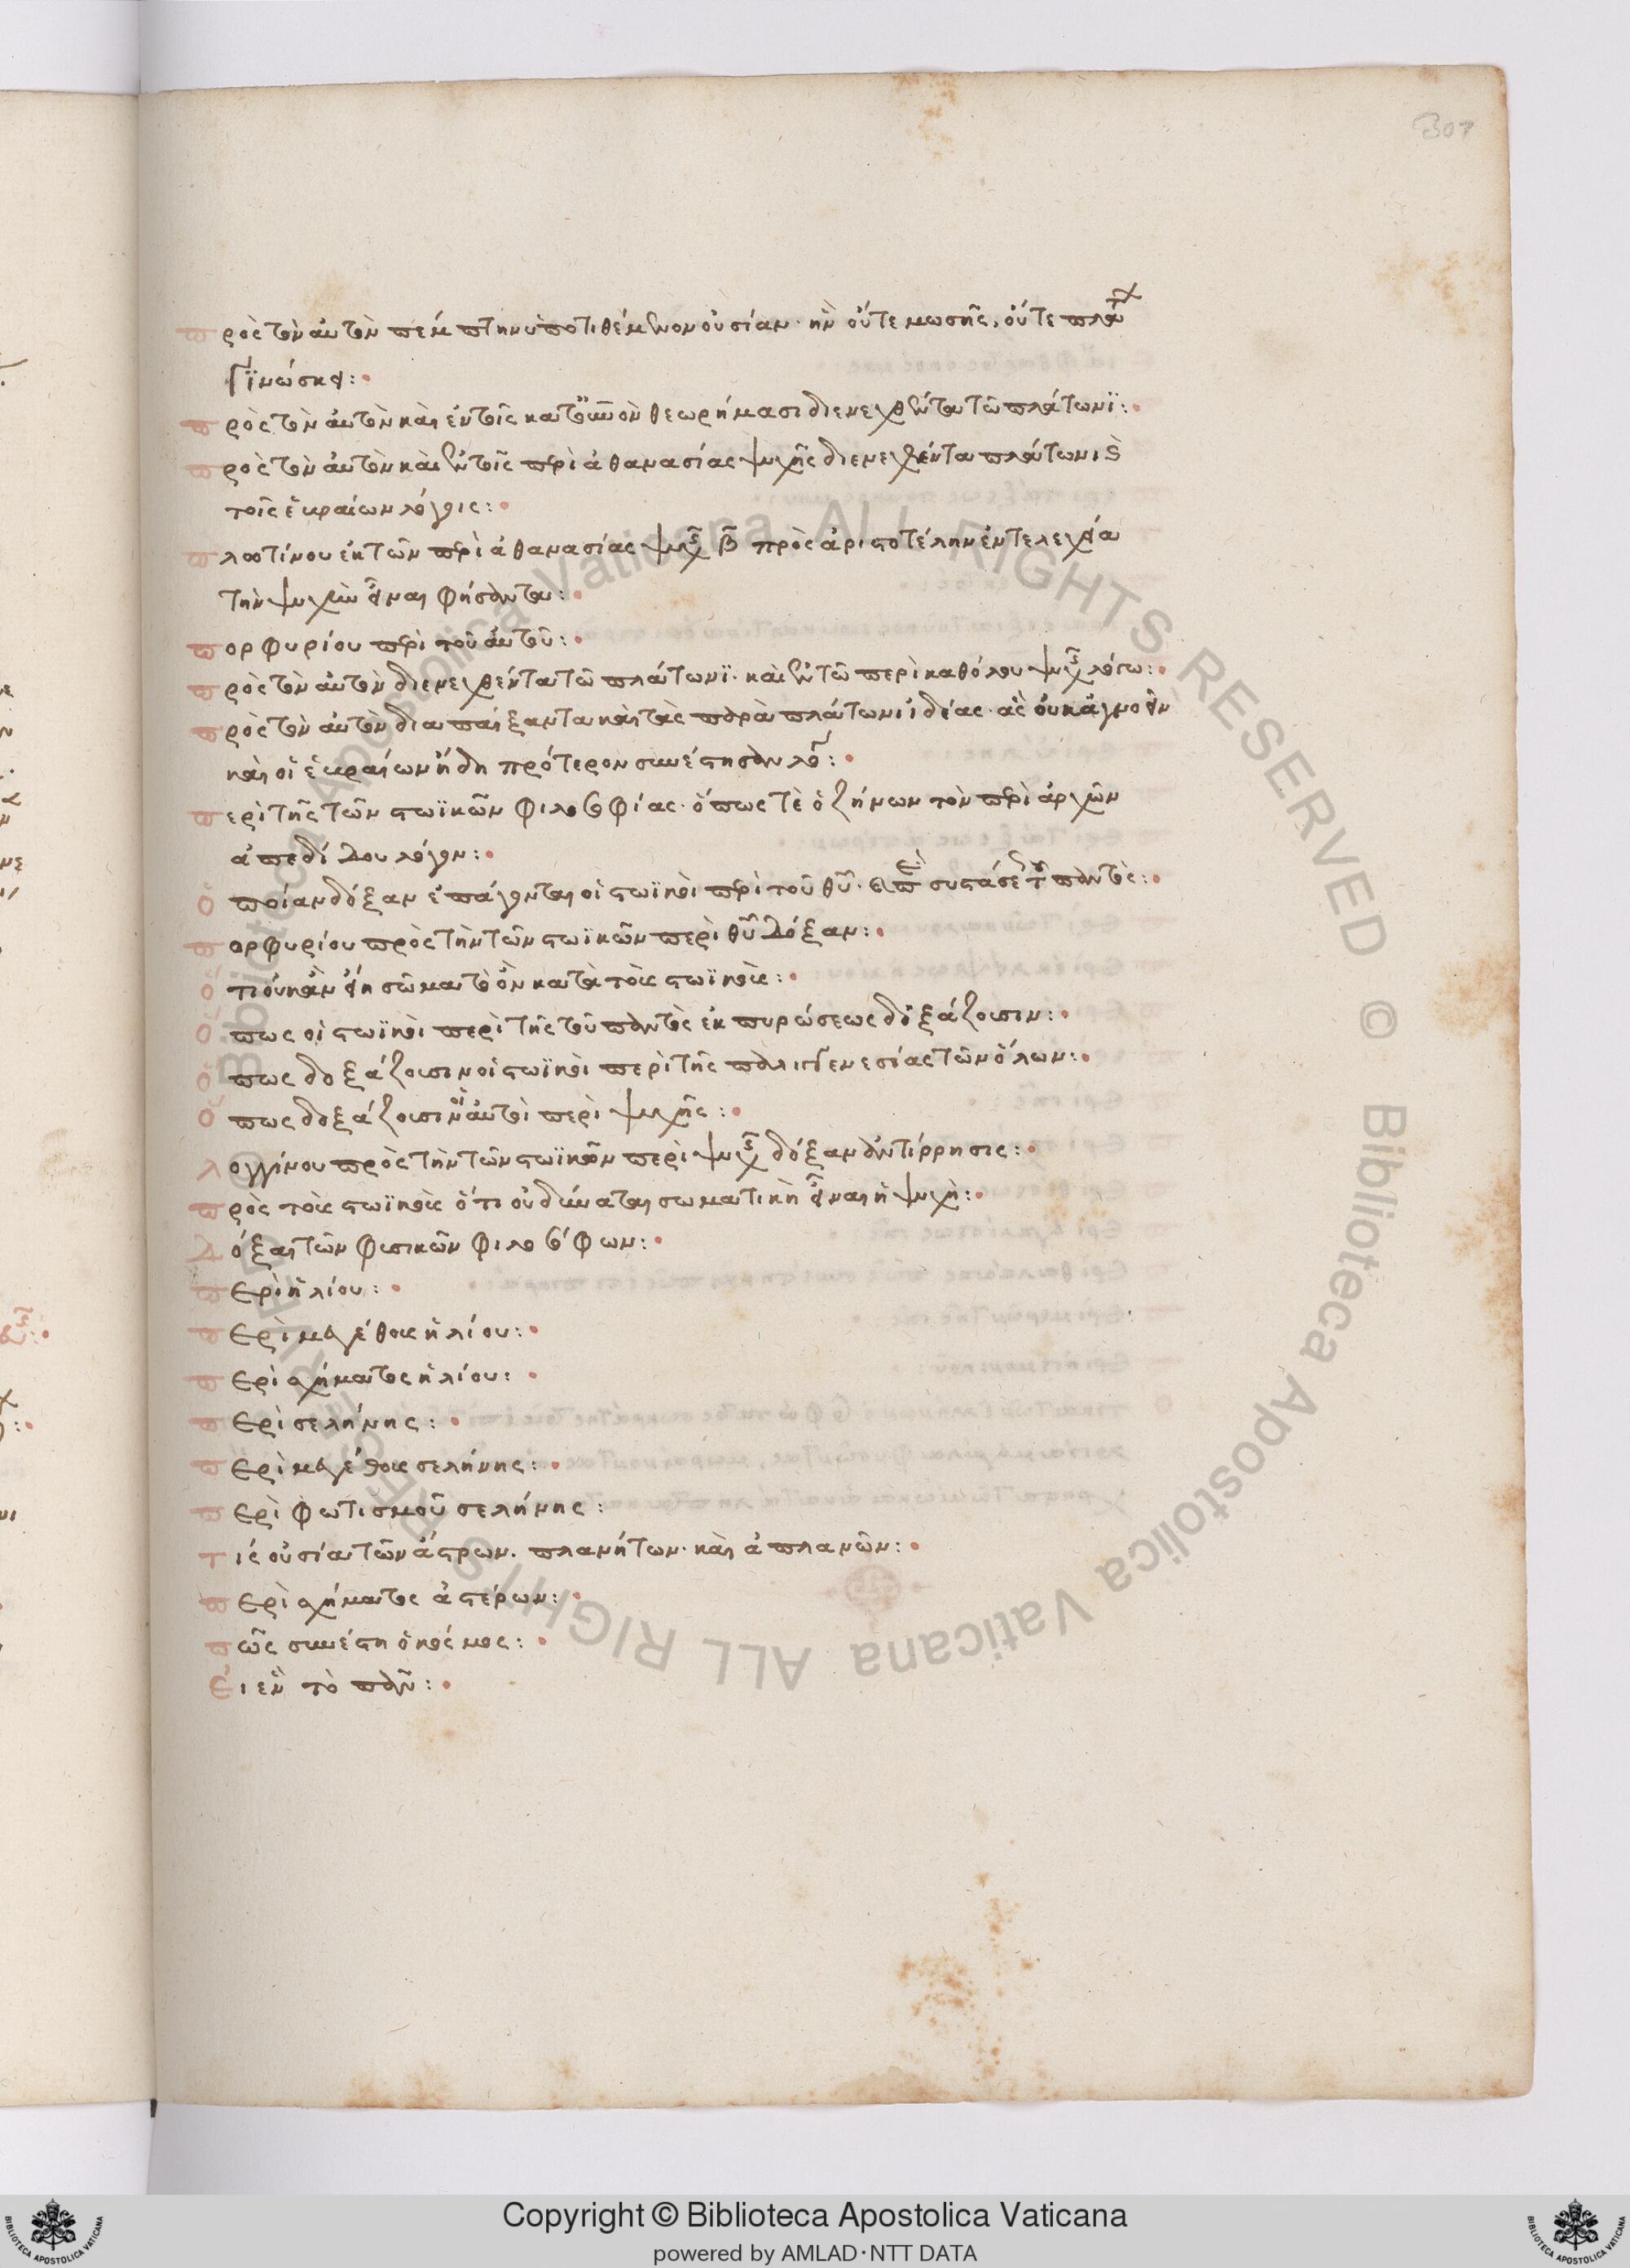 307
πρὸς τὸν αὐτὸν πέμπτην ὑποτιθέμενον οὐσίαν· ἣν οὔτε μωσῆς, οὔτε πλάτ
γϊνώσκει:
πρὸς τὸν αὐτὸν καὶ ἐν τοῖς κατ' οὐνὸν θεωρήμασι διενεχθέντα τῶ πλάτωνϊ:
πρὸς τὸν αὐτὸν καὶ ἐν τοῖς περὶ ἀθανασίας ψυχῆς διενεχθέντα πλάτωνι καὶ
τοῖς ἑβραίων λόγοις:
πλωτίνου ἐκ τῶν περὶ ἀθανασίας ψυχῆς β πρὸς ἀριστοτέλην ἐντελέχεια
τὴν ψυχὴν εἶναι φήσαντα:
πορφυρίου περὶ τοῦ αὐτοῦ:
πρὸς τὸν αὐτὸν διενεχθέντα τῶ πλάτωνϊ· καὶ ἐν τῶ περὶ καθόλου ψυχῆς λόγω:
πρὸς τὸν αὐτὸν διαπαίξαντα καὶ τὰς παρὰ πλάτωνι ἰδέας· ἃς οὐκ ἀγνοεῖν
καὶ οἱ ἑβραίων ἤδη πρότερον συνέστησαν λόγοι:
περὶ τῆς τῶν στωϊκῶν φιλοσοφίας· ὅπως τὲ ὁ ζήνων τὸν περὶ ἀρχῶν
ἀπεδίδου λόγον:
ὁποίαν δόξαν ἐπάγονται οἱ στωϊκοὶ περὶ τοῦ θυ· καὶ περὶ συστάσεως τοῦ παντὸς:
πορφυρίου πρὸς τὴν τῶν στωϊκῶν περὶ θυ δόξαν:
ὅτι οὐκ ἂν εἴη σῶμα τὸ ὂν κατὰ τοὺς στωϊκοὺς:
ὅπως οἱ στωϊκοὶ περὶ τῆς τοῦ παντὸς ἐκπυρώσεως δοξάζουσιν:
ὅπως δοξάζουσιν οἱ στωϊκοὶ περὶ τῆς παλιγγενεσίας τῶν ὅλων:
ὅπως δοξάζουσιν οἱ αὐτοὶ περὶ ψυχῆς:
λογγίνου πρὸς τὴν τῶν στωϊκῶν περὶ ψυχῆς δόξαν ἀντίρρησις:
πρὸς τοὺς στωϊκοὺς ὅτι οὐ δύναται σωματικὴ εἶναι ἡ ψυχὴ:
δόξαι τῶν φυσικῶν φιλοσόφων:
περὶ ἡλίου:
περὶ μεγέθους ἡλίου:
περὶ σχήματος ἡλίου:
περὶ σελήνης:
περὶ μεγέθους σελήνης:
περὶ φωτισμοῦ σελήνης:
τίς οὐσία τῶν ἄστρων. πλανήτων· καὶ ἀπλανῶν:
περὶ σχήματος ἀστέρων:
πῶς συνέστη ὁ κόσμος:
εἰ ἓν τὸ πᾶν:
© Biblioteca Apostolica Vaticana ALL RIGHTS RESERVED © Biblioteca Apostolica Vaticana ALL RIGHTS RESERVED
Copyright © Biblioteca Apostolica Vaticana
powered by AMLAD·NTT DATA
BIBLIOTECA APOSTOLICA VATICANA
BIBLIOTECA APOSTOLICA VATICANA